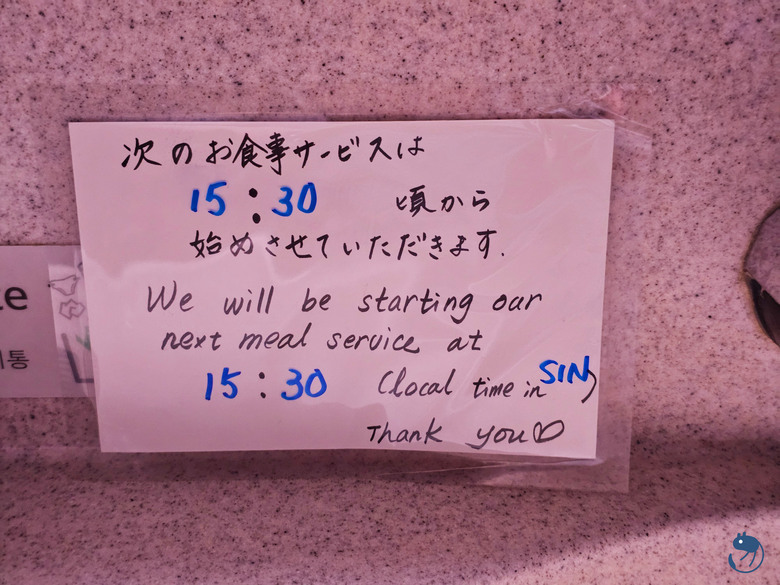 次のお食事サービスは
15:30 頃から
始めさせていただきます.
We will be starting our
next meal service at
15:30 (local time in SIN)
Thank you♡
통